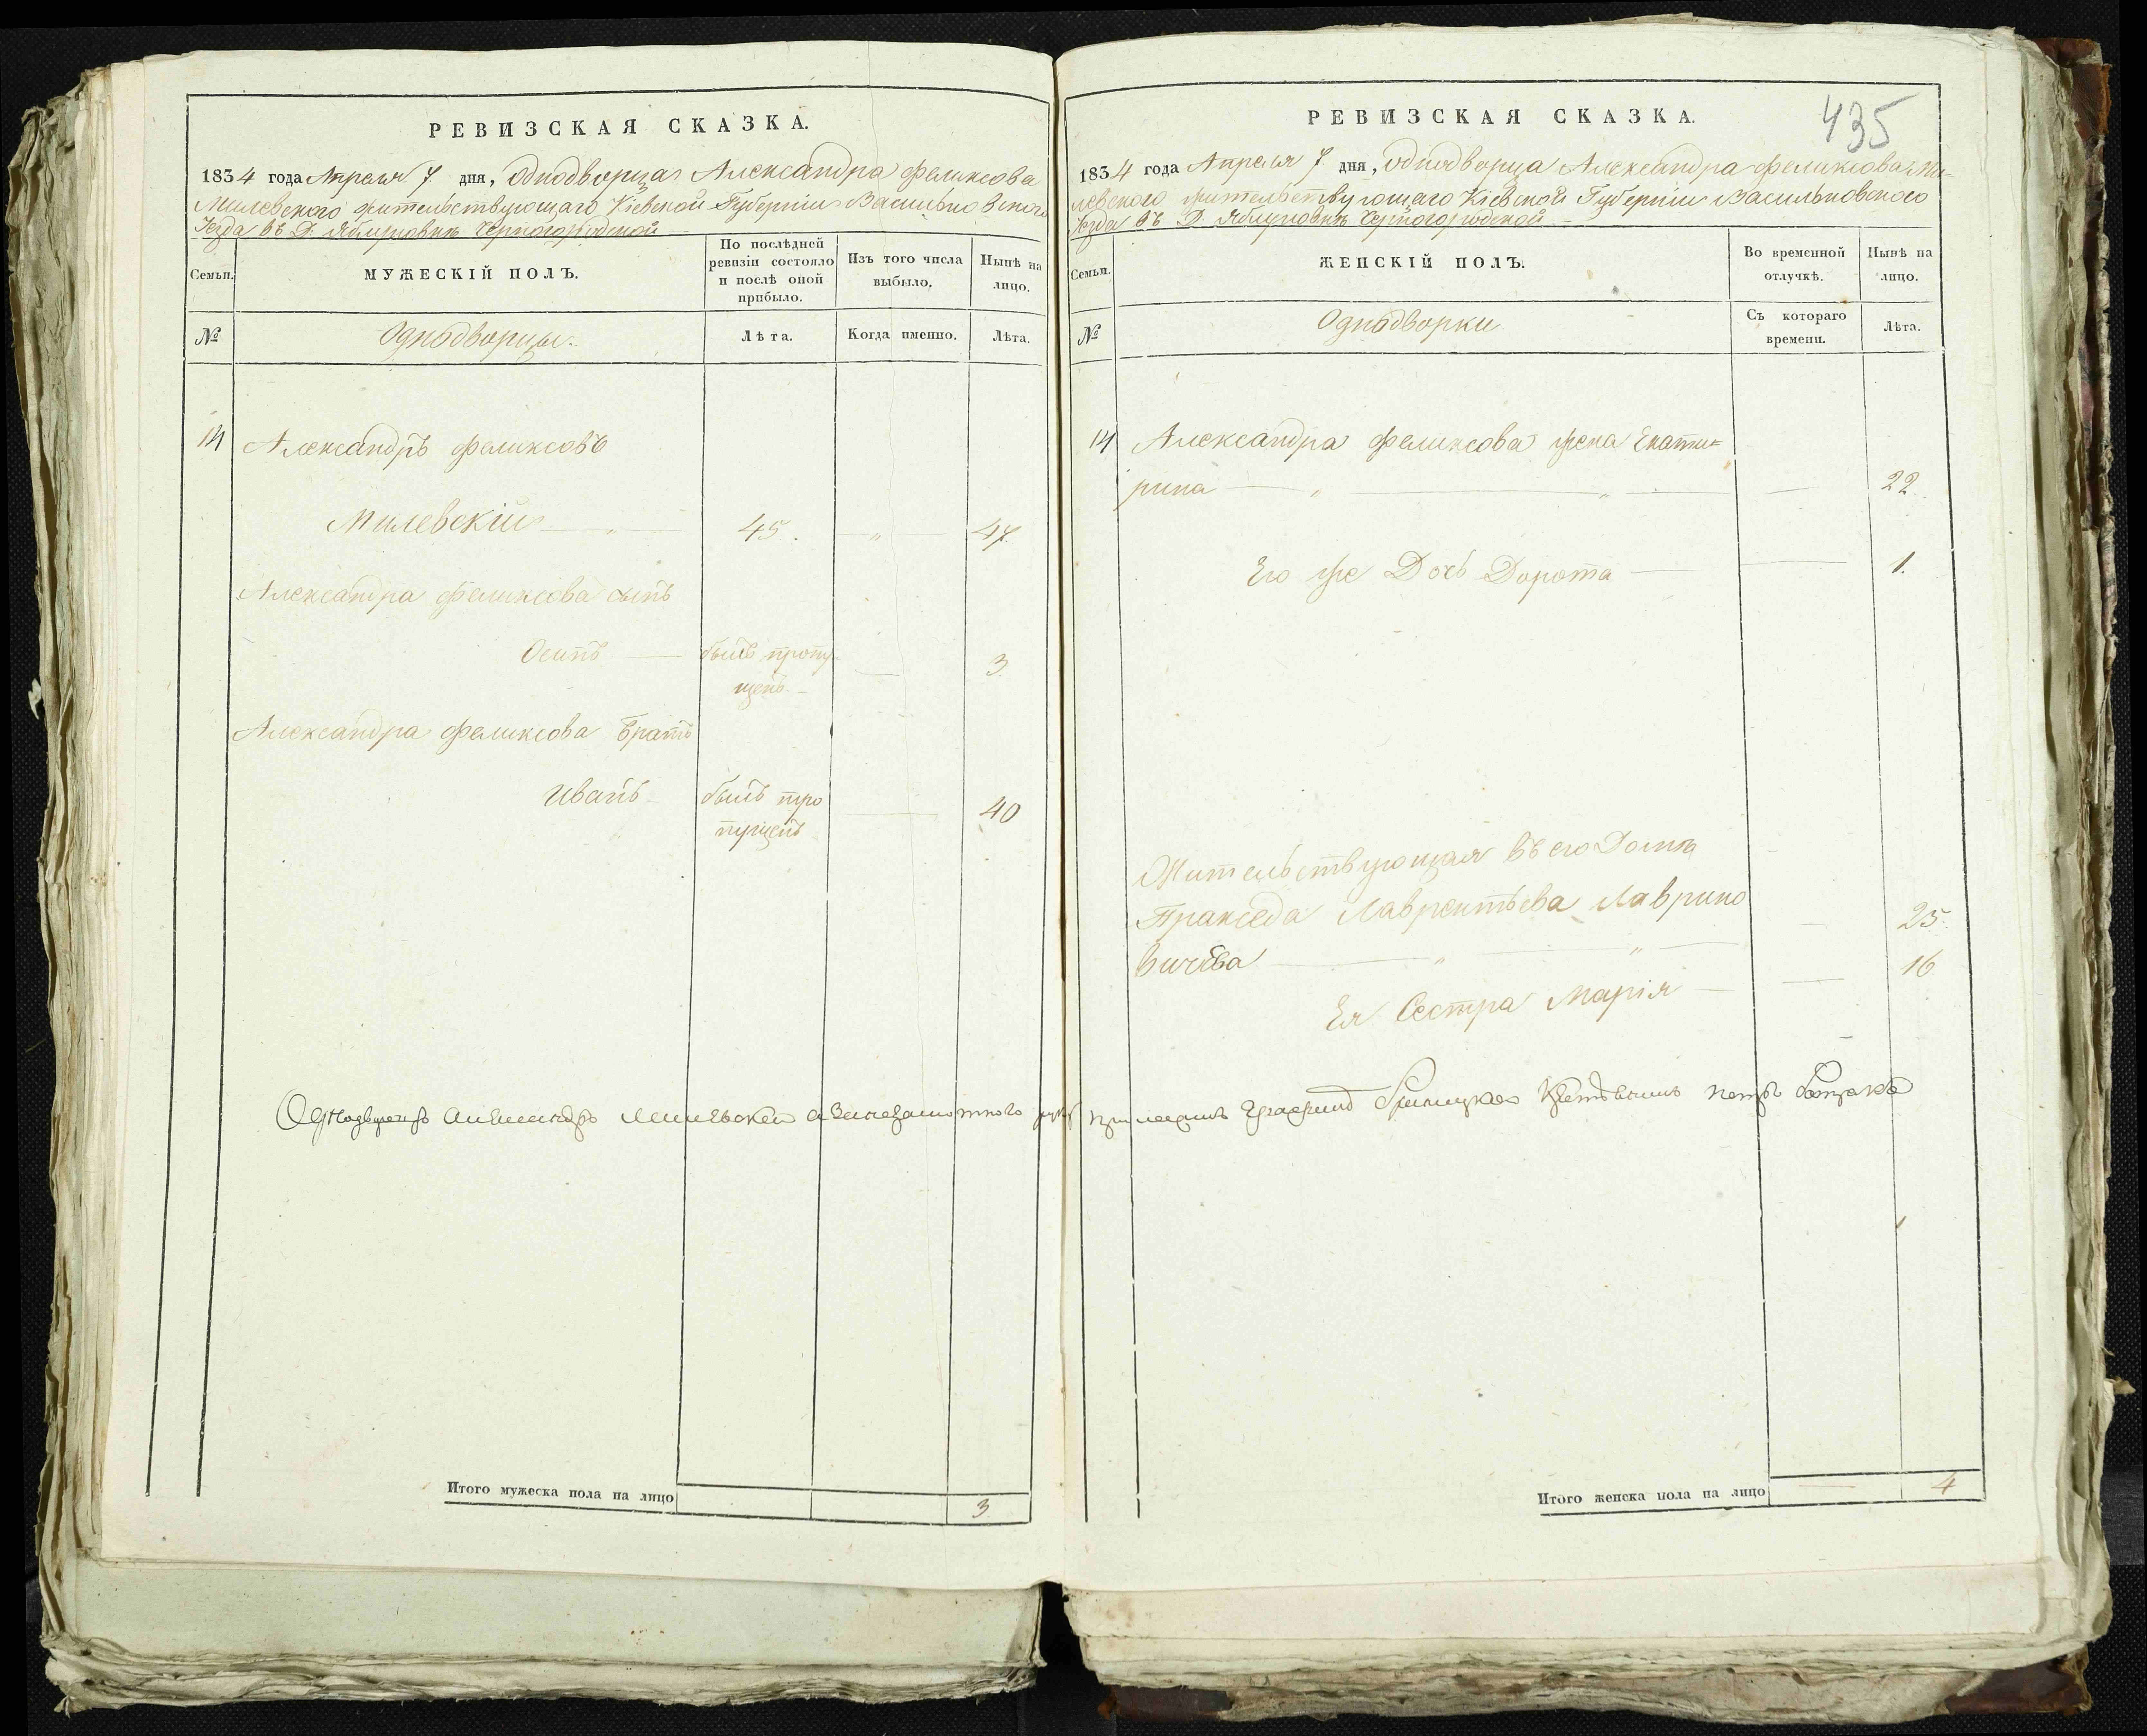 РЕВИЗСКАЯ СКАЗКА.
1834 года Апреля 7 дня, Однодворца Александра Феликсова
Милевского жительствующаго Кіевской Губерніи Васильковского
Уезда въ Д. Яблуновкѣ Черногородской
Семьи.
МУЖЕСКІЙ ПОЛЪ.
По послѣдней
ревизіи состояло
и послѣ оной
прибыло.
Изъ того числа
выбыло.
Нынѣ на
лицо.
№
Однодворцы.
Лѣта.
Когда именно.
Лѣта.
14 Александръ Феликсовъ
Милевскій 45. 47.
Александра Феликсова сынъ
Осипъ былъ пропу- 3.
щенъ
Александра Феликсова Братъ
Иванъ былъ про 40
пущенъ
Итого мужеска пола на лицо 3
435
РЕВИЗСКАЯ СКАЗКА.
1834 года Апреля 7 дня, Однодворца Александра Феликсова Ми-
левского жительствующаго Кіевской Губерніи Васильковского
Уезда въ Д. Яблуновкѣ Черногородской
Семьи.
ЖЕНСКІЙ ПОЛЪ.
Во временной
отлучкѣ.
Нынѣ на
лицо.
№
Однодворки
Съ котораго
времени.
Лѣта.
14 Александра Феликсова жена Екати=
рина 22.
Его же Дочь Дорота 1.
Жительствующая въ его Домѣ
Пракседа Лаврентьева Лаврино 25.
вичева 16
Ея Сестра Марія
Однодворецъ Александръ Милевскій а за неграмотного руку приложилъ
Итого женска пола на лицо 4